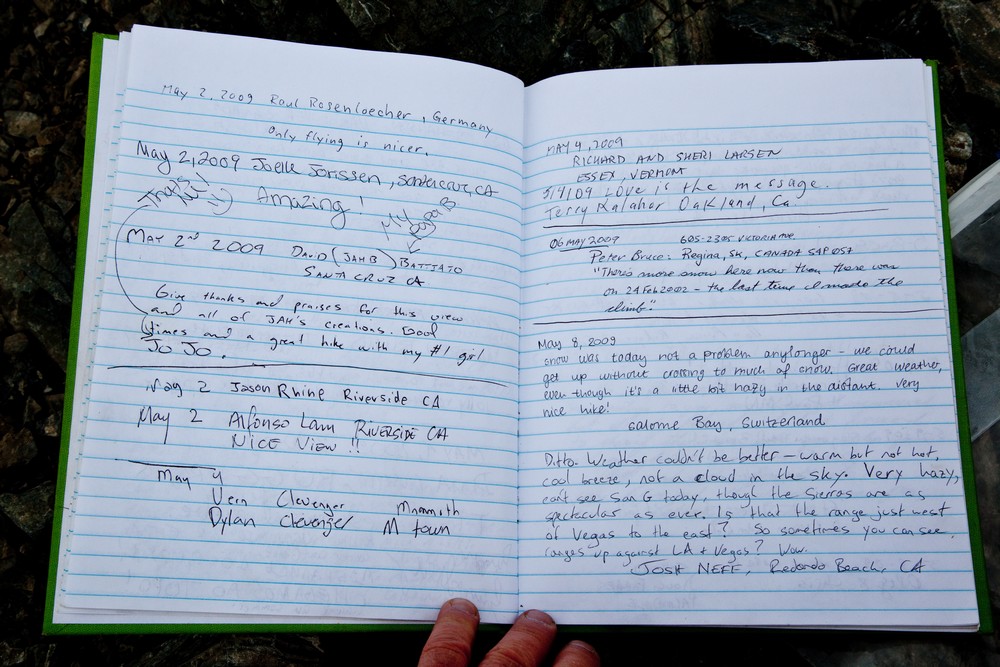 May 2, 2009 Raul Rosenloecher, Germany
Only flying is nicer.
May 2, 2009 Joelle Jorissen, CA
That's Me! :)
Amazing!
My
MAY 2nd 2009 DAVID (JAH B) BATTIATO
SANTA CRUZ CA
Give thanks and praises for this view
and all of JAH's creations. Good
times and a great hike with my #1 girl
JO JO.
May 2 Jason Rhine Riverside CA
May 2 Alfonso Lam RIVERSIDE CA
NICE VIEW !!
May 4
Vern Clevenger Mammoth
Dylan Clevenger M town
MAY 4, 2009
RICHARD AND SHERI LARSEN
ESSEX, VERMONT
5/4/09 Love is the message.
Terry Kalahar Oakland, Ca
06 MAY 2009 605-2305 VICTORIA AVE.
Peter Bruce: Regina, SK, CANADA S4P 0S7
"There's more snow here now than there was
on 24 Feb 2002 - the last time I made the
climb".
May 8, 2009
snow was today not a problem anylonger - we could
get up without crossing to much of snow. Great weather,
even though it's a little bit hazy in the distant. very
nice hike!
Salome Bay, Switzerland
Ditto. Weather couldn't be better - warm but not hot,
cool breeze, not a cloud in the sky. Very hazy,
can't see San G today, though the Sierras are as
spectacular as ever. Is that the range just west
of Vegas to the east? So sometimes you can see
ranges up against LA + Vegas? Wow.
JOSH NEFF, Redondo Beach, CA